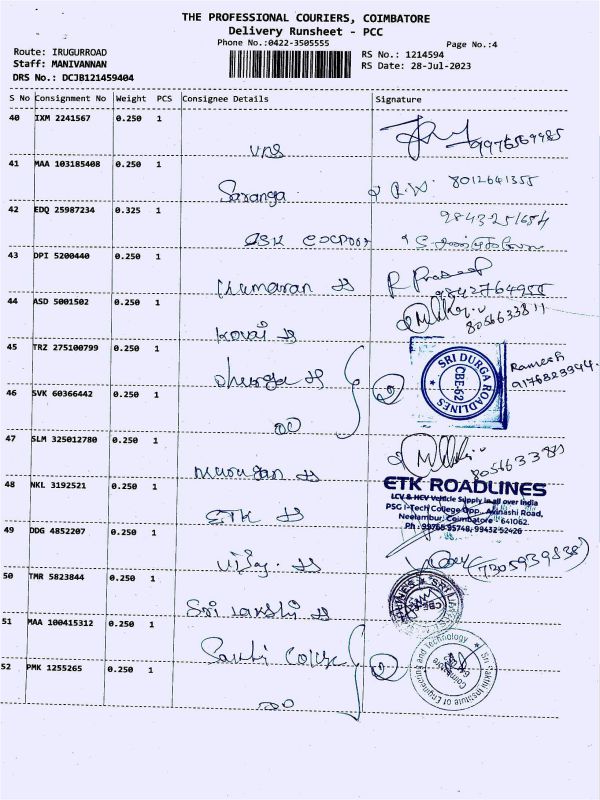 THE PROFESSIONAL COURIERS, COIMBATORE
Delivery Runsheet - PCC
Phone No.:0422-3505555
Page No.:4
Route: IRUGURROAD
RS No.: 1214594
Staff: MANIVANNAN
RS Date: 28-Jul-2023
DRS No.: DCJB121459404
S No Consignment No Weight PCS Consignee Details Signature
40 IXM 2241567 0.250 1
9976569985
41 MAA 103185408 0.250 1
Saranga 8012641355
42 EDQ 25987234 0.325 1
9843251654
43 DPI 5200440 0.250 1
Kumaran R Prasad
9842764955
44 ASD 5001502 0.250 1
Kovai
8056633811
45 TRZ 275100799 0.250 1
Dhurga
SRI DURGA ROADLINES
CBE-62
Ramesh
9176823944
46 SVK 60366442 0.250 1
47 SLM 325012780 0.250 1
Murugan
48 NKL 3192521 0.250 1
ETK
ETK ROADLINES
LCV & HCV Vehicle Supply in all over India
PSG i-Tech College Opp., Avinashi Road,
Neelambur, Coimbatore - 641062.
Ph : 99765 95748, 99432 52426
49 DDG 4852207 0.250 1
Vijay
(7205939838)
50 TMR 5823844 0.250 1
Sri Lakshi
51 MAA 100415312 0.250 1
Sakthi College
Sri Sakthi Institute of Engineering and Technology
Coimbatore
52 PMK 1255265 0.250 1